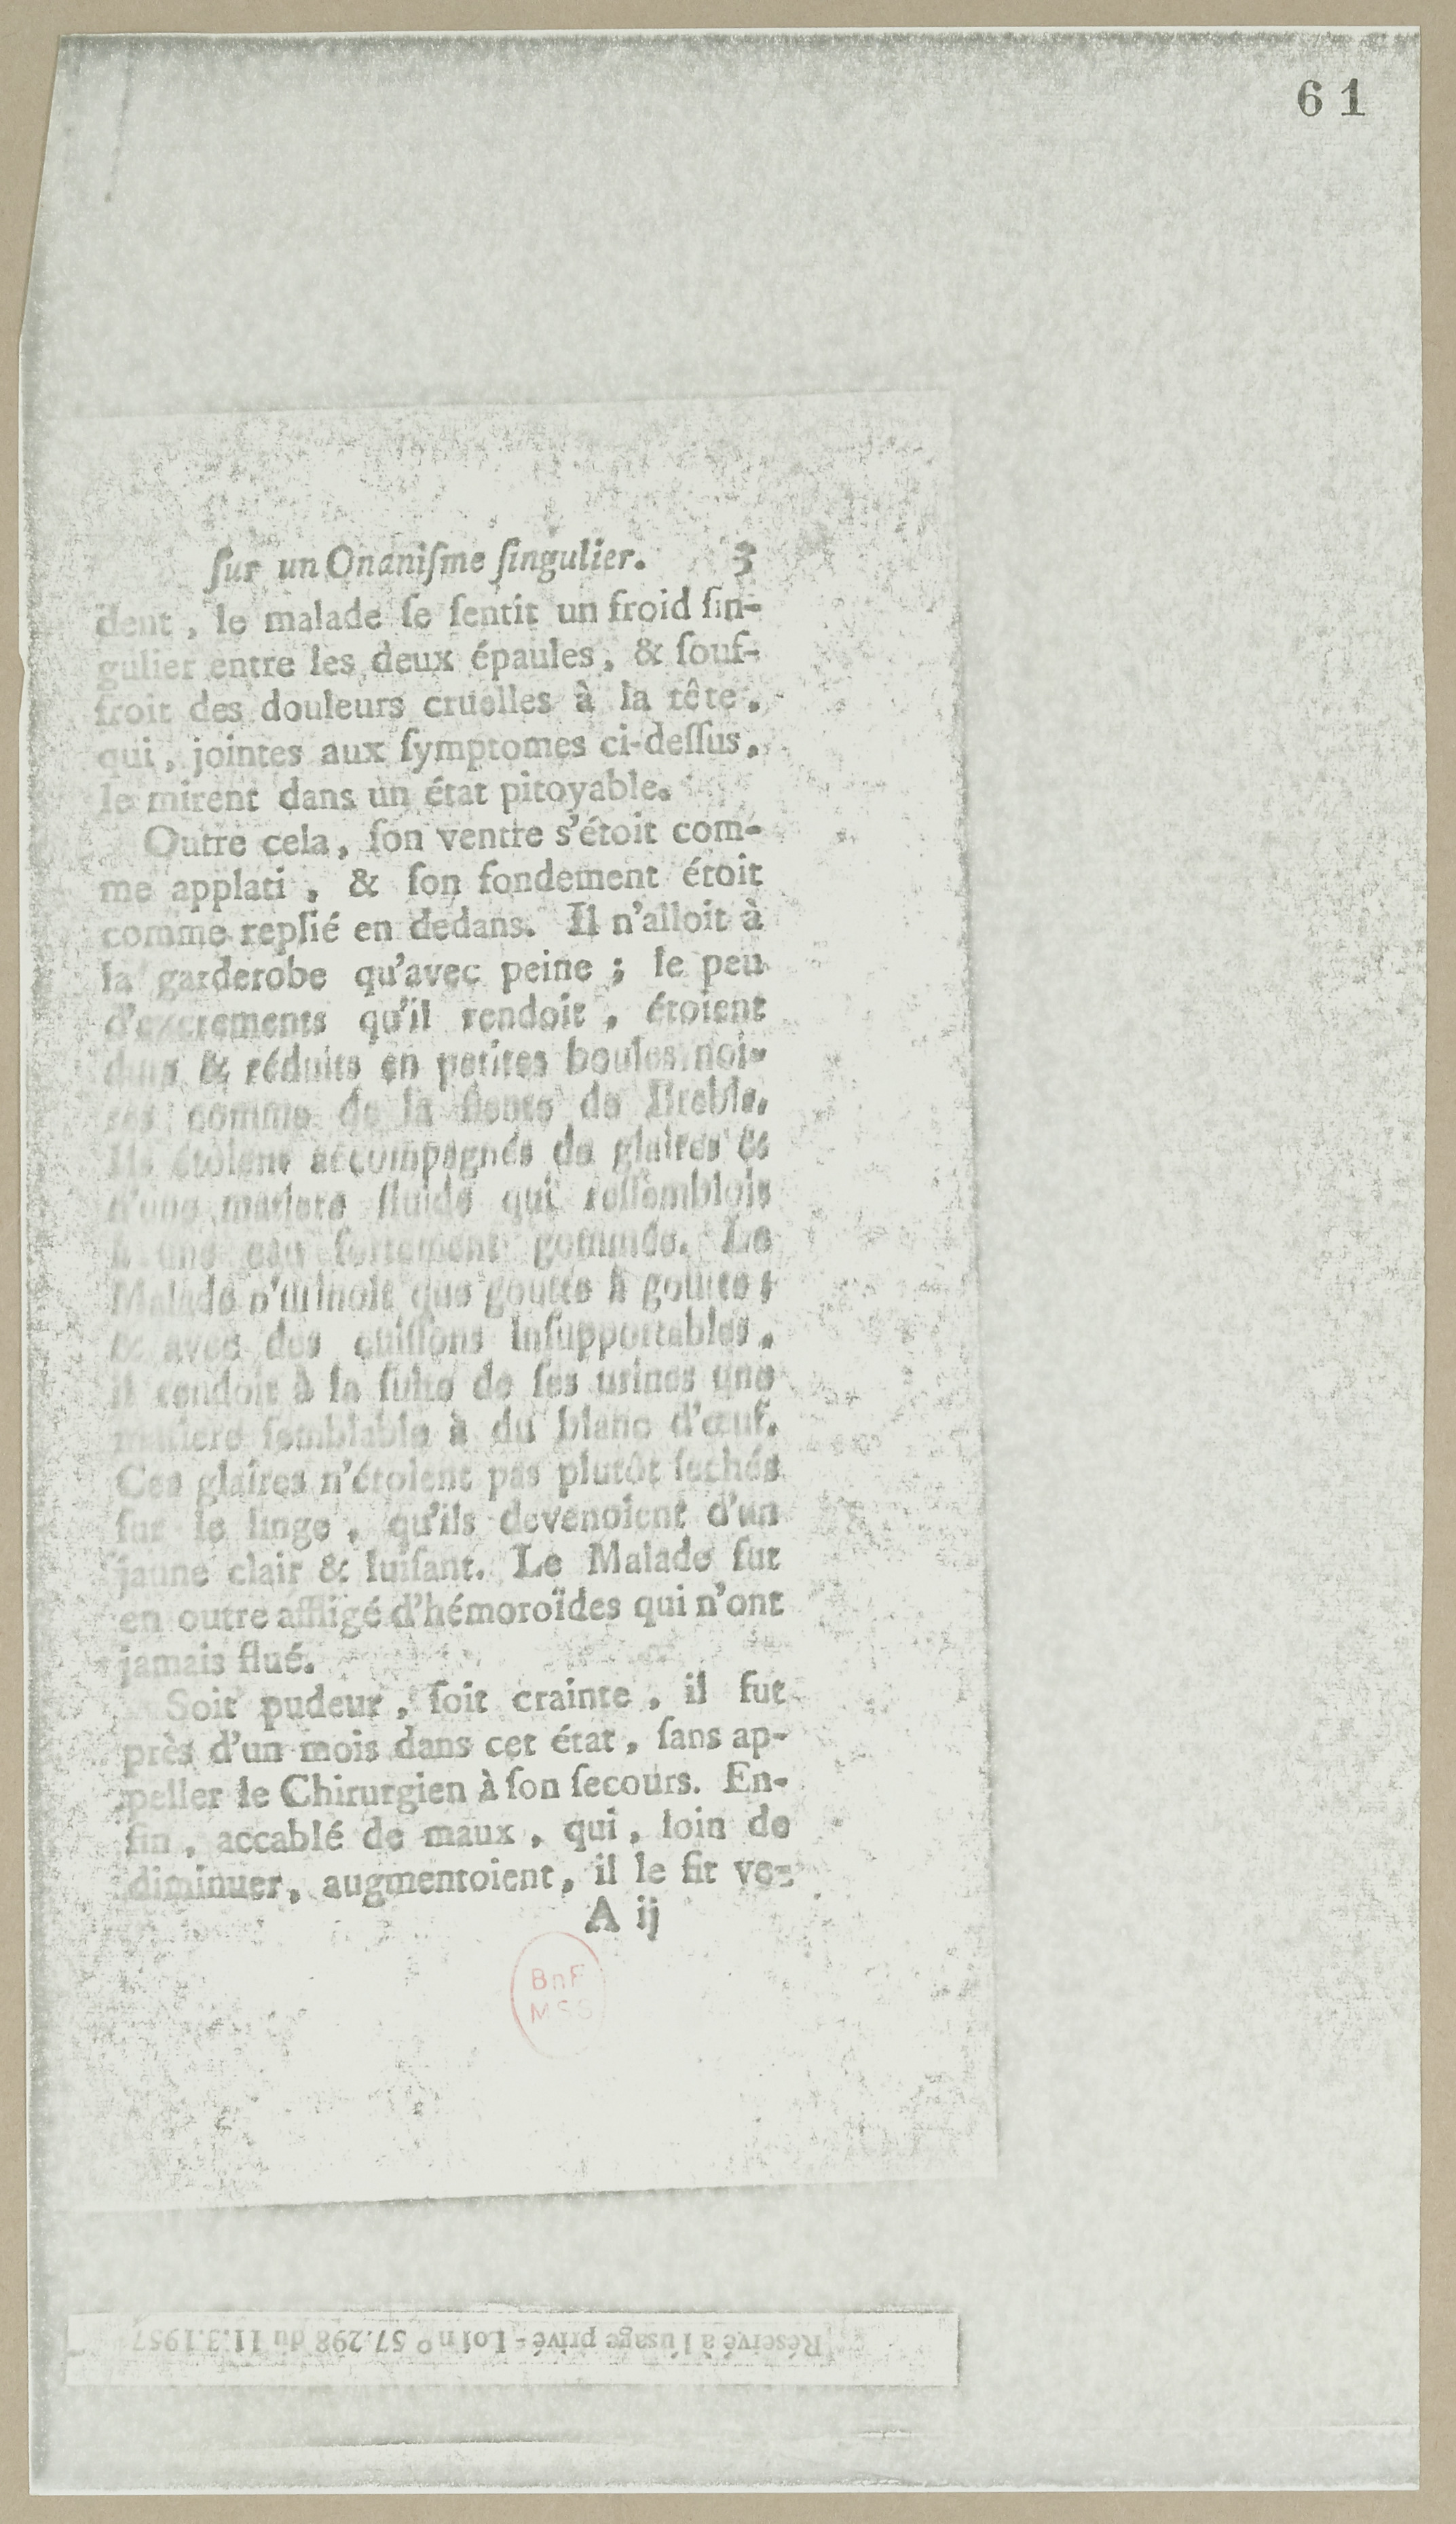 61
ſur un Onaniſme ſingulier. 3
dent, le malade ſe ſentit un froid ſin-
gulier entre les deux épaules, & ſouf-
froit des douleurs cruelles à la tête,
qui, jointes aux ſymptomes ci-deſſus,
le mirent dans un état pitoyable.
Outre cela, ſon ventre s'étoit com-
me applati, & ſon fondement étoit
comme replié en dedans. Il n'alloit à
la garderobe qu'avec peine ; le peu
d'excrements qu'il rendoit, étoient
durs & réduits en petites boules noi-
res comme de la fiente de Brebis.
Ils étoient accompagnés de glaires &
d'une matiere fluide qui reſſembloit
à une eau fortement gommée. Le
Malade n'urinoit que goutte à goutte ;
& avec des cuiſſons inſupportables,
il rendoit à la ſuite de ſes urines une
matiere ſemblable à du blanc d'œuf.
Ces glaires n'étoient pas plutôt ſechés
ſur le linge, qu'ils devenoient d'un
jaune clair & luiſant. Le Malade fut
en outre affligé d'hémoroïdes qui n'ont
jamais flué.
Soit pudeur, ſoit crainte, il fut
près d'un mois dans cet état, ſans ap-
peller le Chirurgien à ſon ſecours. En-
fin, accablé de maux, qui, loin de
diminuer, augmentoient, il le fit ve-
A ij
BnF
MSS
Réservé à l'usage privé - Loi n° 57.298 du 11.3.1957